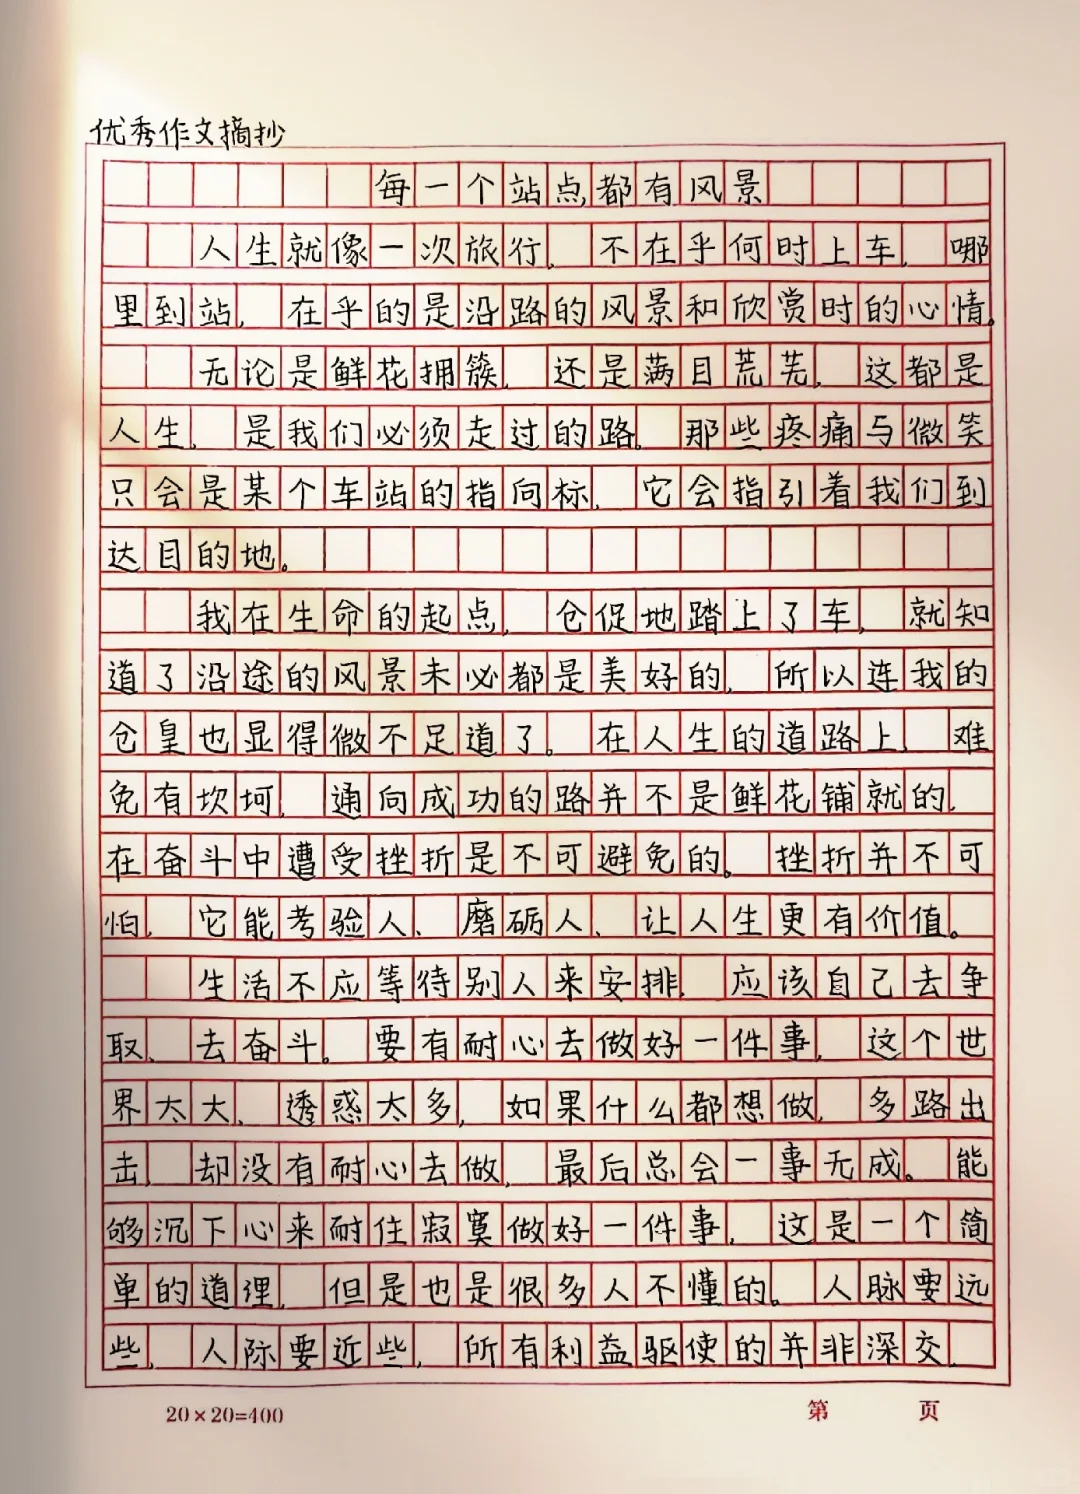 优秀作文摘抄
每一个站点都有风景
人生就像一次旅行，不在乎何时上车，哪
里到站，在乎的是沿路的风景和欣赏时的心情。
无论是鲜花拥簇，还是满目荒芜，这都是
人生，是我们必须走过的路。那些疼痛与微笑
只会是某个车站的指向标，它会指引着我们到
达目的地。
我在生命的起点，仓促地踏上了车，就知
道了沿途的风景未必都是美好的，所以连我的
仓皇也显得微不足道了。在人生的道路上，难
免有坎坷，通向成功的路并不是鲜花铺就的，
在奋斗中遭受挫折是不可避免的。挫折并不可
怕，它能考验人、磨砺人、让人生更有价值。
生活不应等待别人来安排，应该自己去争
取、去奋斗。要有耐心去做好一件事，这个世
界太大，诱惑太多，如果什么都想做，多路出
击，却没有耐心去做，最后总会一事无成。能
够沉下心来耐住寂寞做好一件事，这是一个简
单的道理，但是也是很多人不懂的。人脉要远
些，人际要近些，所有利益驱使的并非深交，
20×20=400
第 页